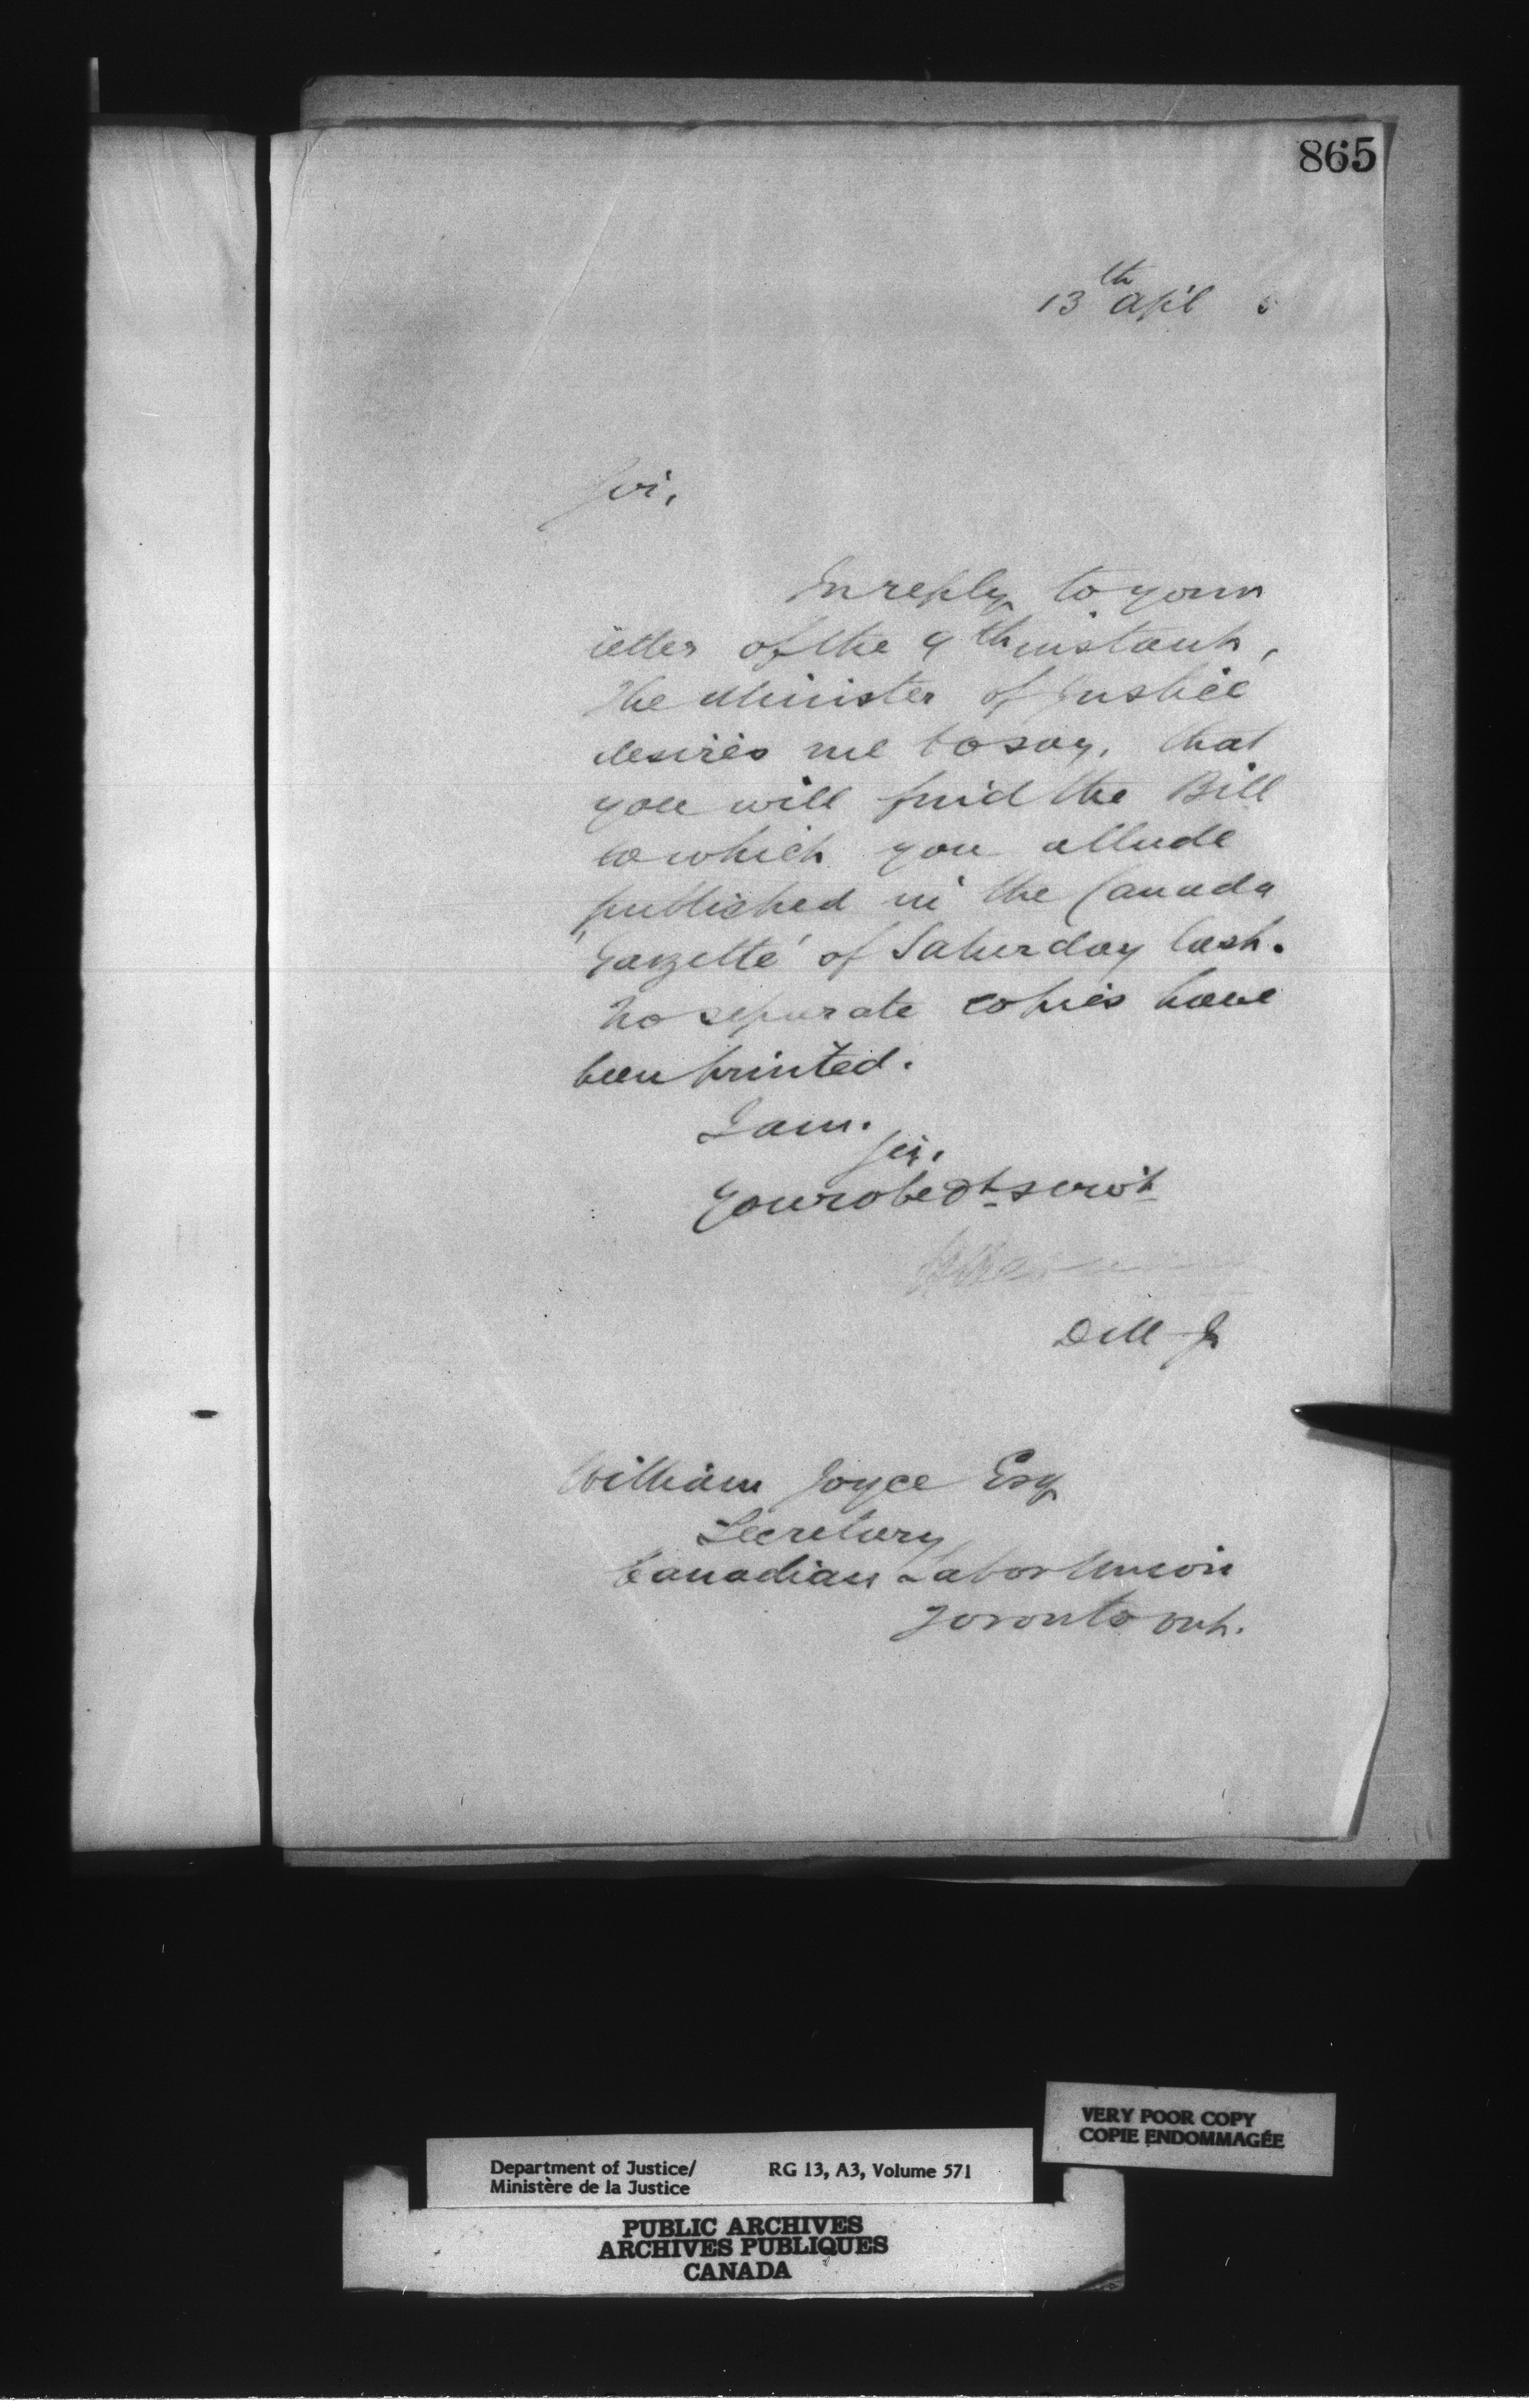 865
13th April 5
Sir,
In reply to your
letter of the 9th instant,
the Minister of Justice
desires me to say, that
you will find the Bill
to which you allude
published in the Canada
'Gazette' of Saturday last.
No separate copies have
been printed.
I am.
Sir.
Your obedt servt
D M J
William Joyce Esq
Secretary
Canadian Labor Union
Toronto Ont.
VERY POOR COPY
COPIE ENDOMMAGÉE
Department of Justice/ RG 13, A3, Volume 571
Ministère de la Justice
PUBLIC ARCHIVES
ARCHIVES PUBLIQUES
CANADA